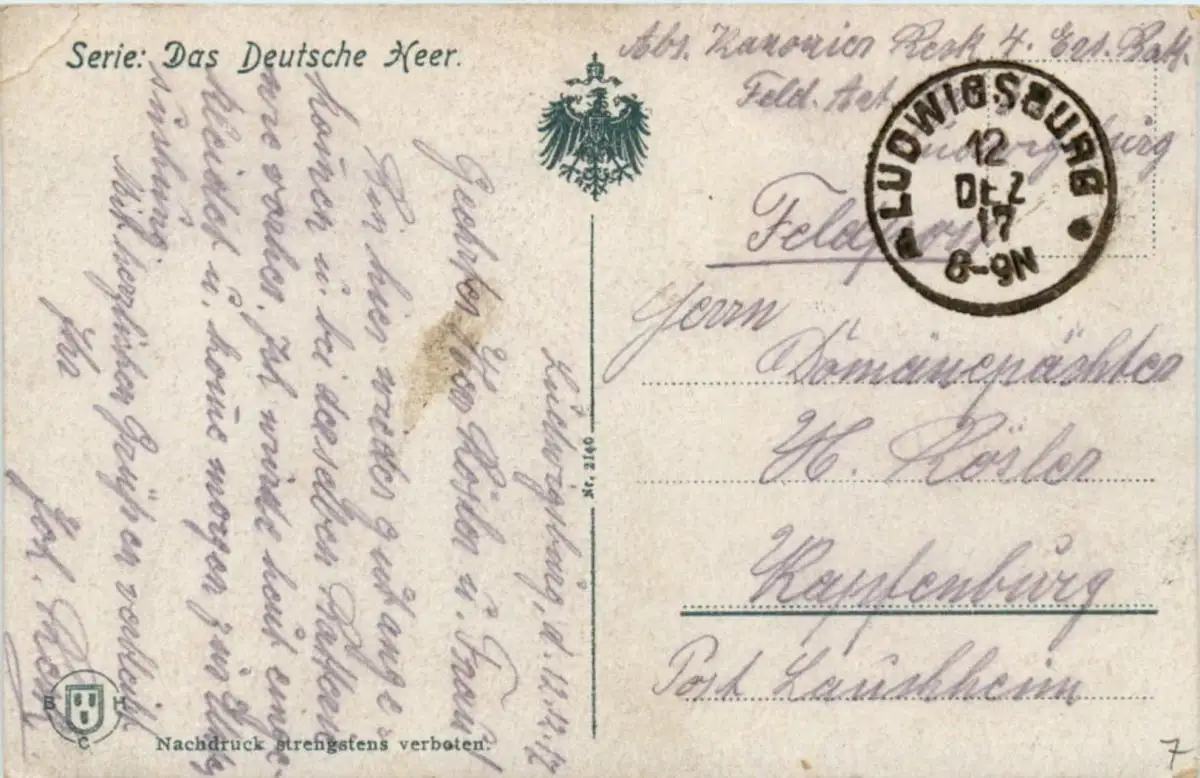 Serie: Das Deutsche Heer.
Abs. Kanonier Resk 4. Ers. Batt.
Feld. Art.
Ludwigsburg
LUDWIGSBURG
12
DEZ
17
8-9N
Feldpost
Herrn
Domänepächter
H. Rösler
Kapfenburg
Post Lauchheim
Ludwigsburg, d. 12.12.17
Geehrter Herr Rösler u. Frau!
Bin hier wieder gut ange-
kommen u. bei derselben Batterie
wie vorher. Ich wurde heut einge-
kleidet u. komme morgen zur
Mit herzlichen Grüßen verbleibt
Ihr
Jos.
Nr. 2140
B H
C
Nachdruck strengstens verboten.
7